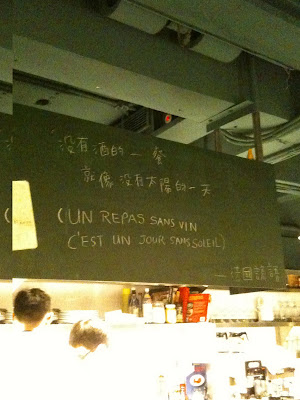 没有酒的一餐
就像没有太陽的一天
(UN REPAS SANS VIN
C'EST UN JOUR SANS SOLEIL)
— 法國諺語